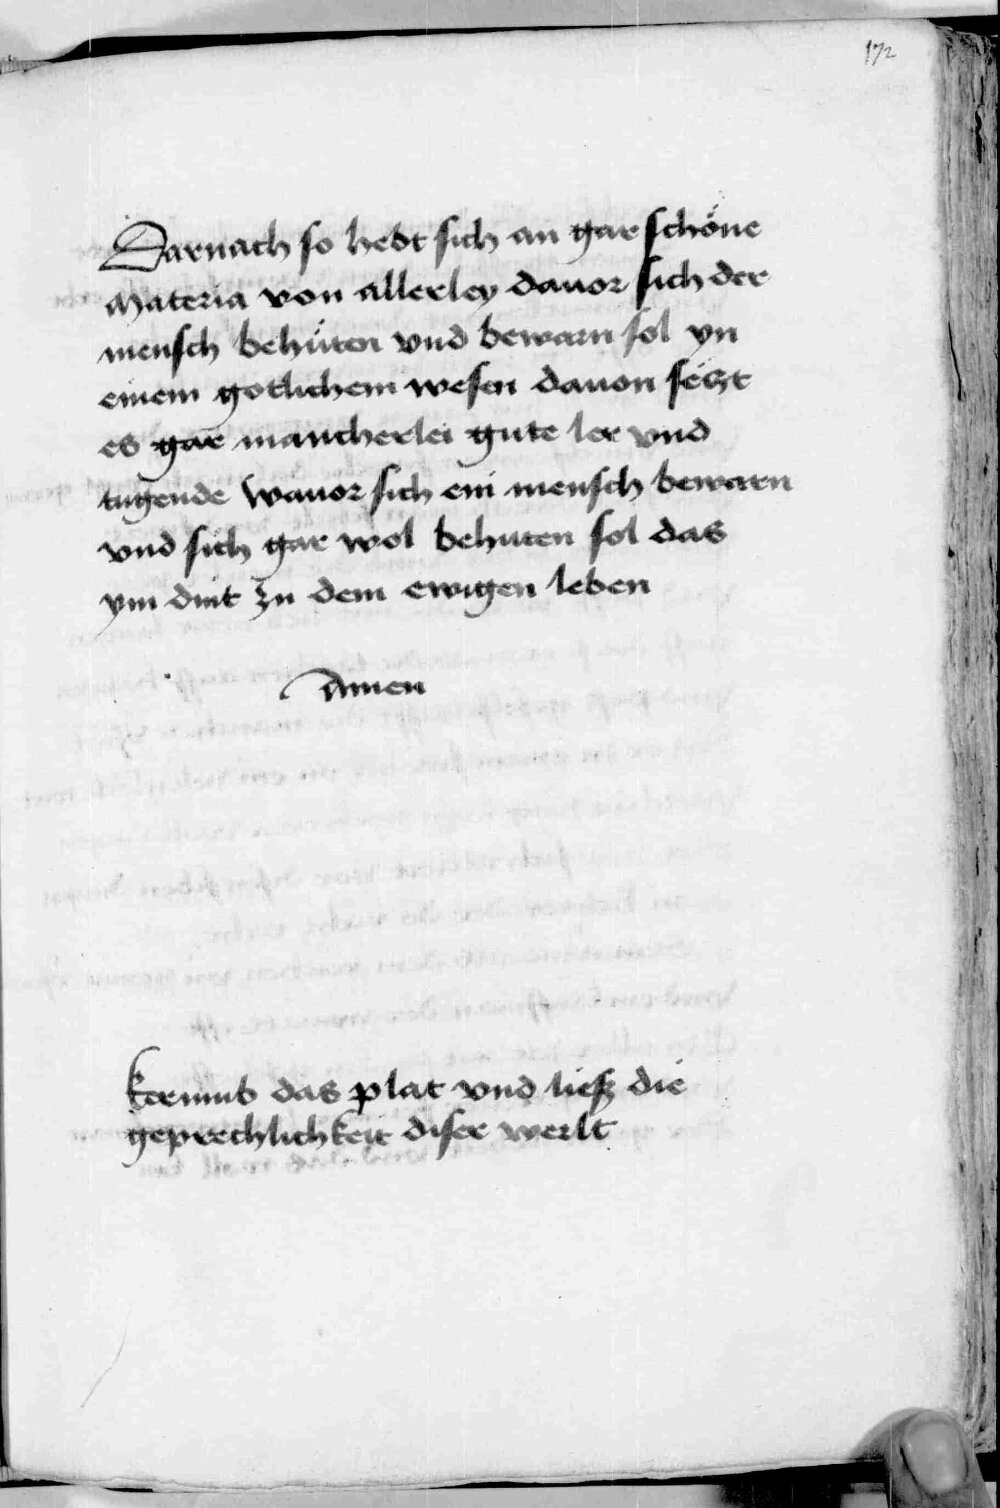 172
Darnach so hebt sich an gar schöne
materia von allerley dauor sich der
mensch behüten vnd bewarn sol yn
einem gotlichem wesen dauon seczt
es gar mancherlei gute ler vnd
tugende wauor sich ein mensch bewarn
vnd sich gar wol behuten sol das
ym dint zu dem ewigen leben
Amen
kermmb das plat vnd liesz die
geprechlichkeit diser werlt